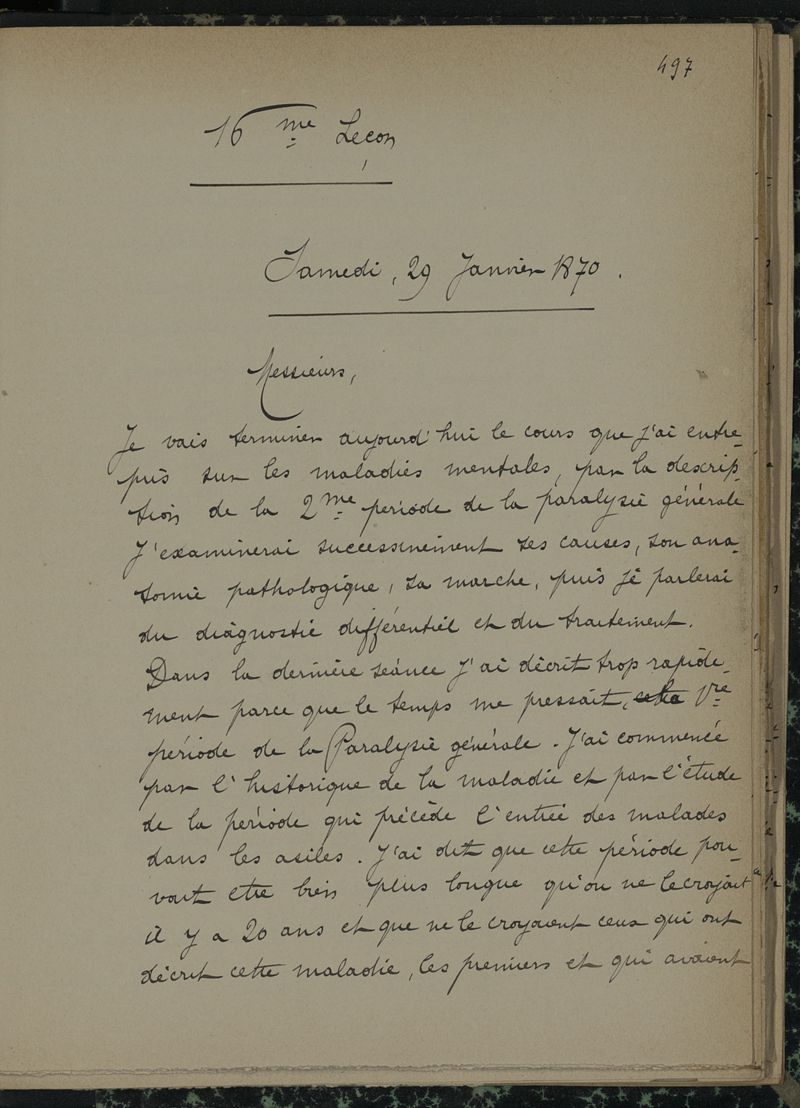 497
16me Leçon
Samedi, 29 Janvier 1870.
Messieurs,
Je vais terminer aujourd'hui le cours que j'ai entre-
pris sur les maladies mentales, par la descrip-
tion de la 2me période de la paralysie générale
J'examinerai successivement ses causes, son ana-
tomie pathologique, sa marche, puis je parlerai
du diagnostic différentiel et du traitement.
Dans la dernière séance j'ai décrit trop rapide-
ment parce que le temps me pressait, la 1re
période de la Paralysie générale. J'ai commencé
par l'historique de la maladie et par l'étude
de la période qui précède l'entrée des malades
dans les asiles. J'ai dit que cette période pou-
vait etre bien plus longue qu'on ne le croyait
il y a 20 ans et que ne le croyaient ceux qui ont
décrit cette maladie, les premiers et qui avaient